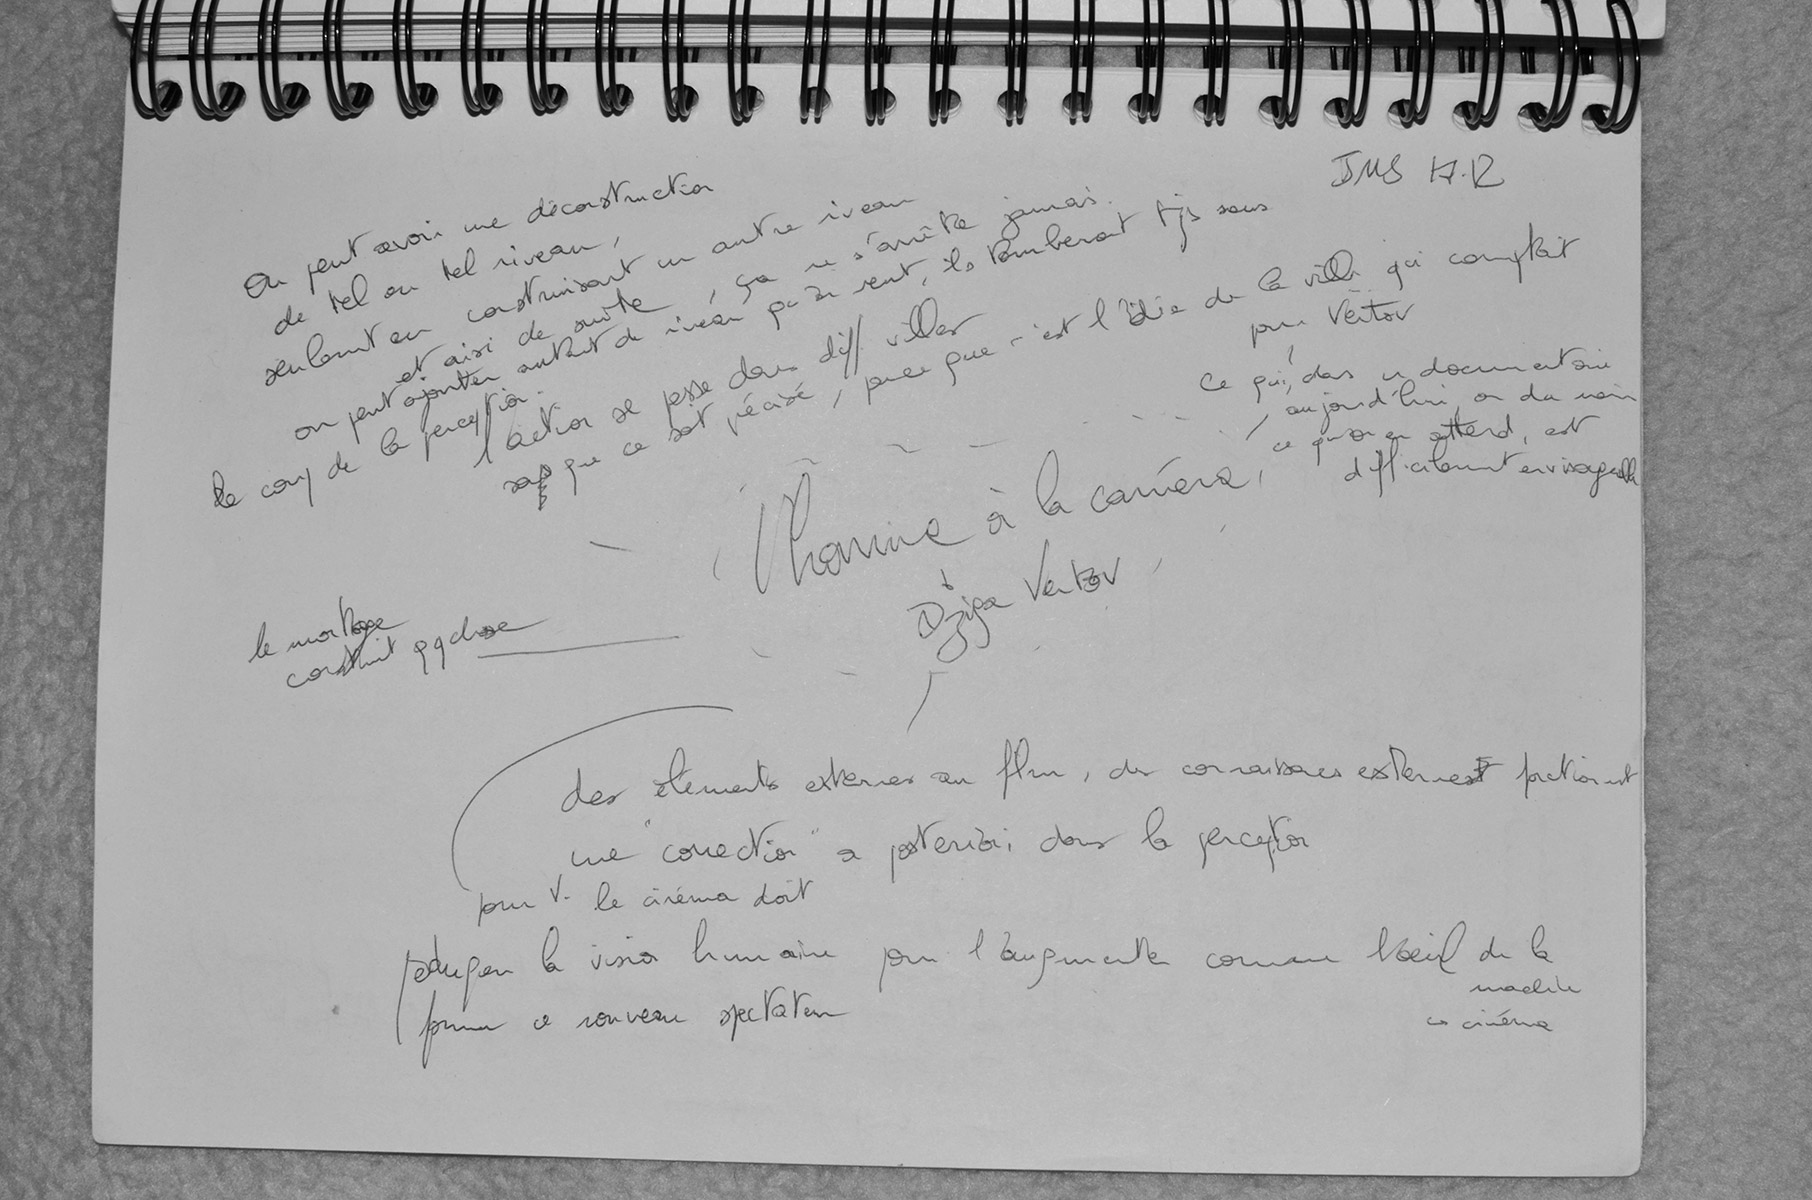 JMS 17.12
On peut avoir une déconstruction
de tel ou tel niveau,
seulemt en construisant un autre niveau
et ainsi de suite, ça ne s'arrête jamais.
on peut ajouter autant de niveau qu'on veut, ils tomberont tjs sous
le coup de la perception.
l'action se passe dans diff villes
que ce soit précisé, parce que c'est l'idée de la ville qui comptait
pour Vertov
ce qui, dans un documentaire
aujourd'hui, ou du moin
ce qu'on en attend, est
difficilemt envisageable
l'homme à la caméra,
Dziga Vertov
le montage
construit qqchose
des éléments externes au film, des connaissances externes fonctionnt
une "correction" a posteriori dans la perception
pour V. le cinéma doit
éduquer la vision humaine pour l'augmenter comme l'oeil de la
machine
cinéma
former ce nouveau spectateur